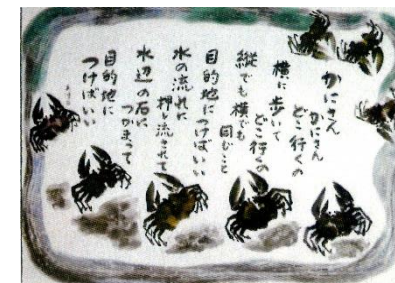 かにさん
かにさん
どこ行くの
横に歩いて
どこ行くの
縦でも横でも
同じこと
目的地につけばいい
水の流れに
押し流されて
水辺の石に
つかまって
目的地に
つけばいい